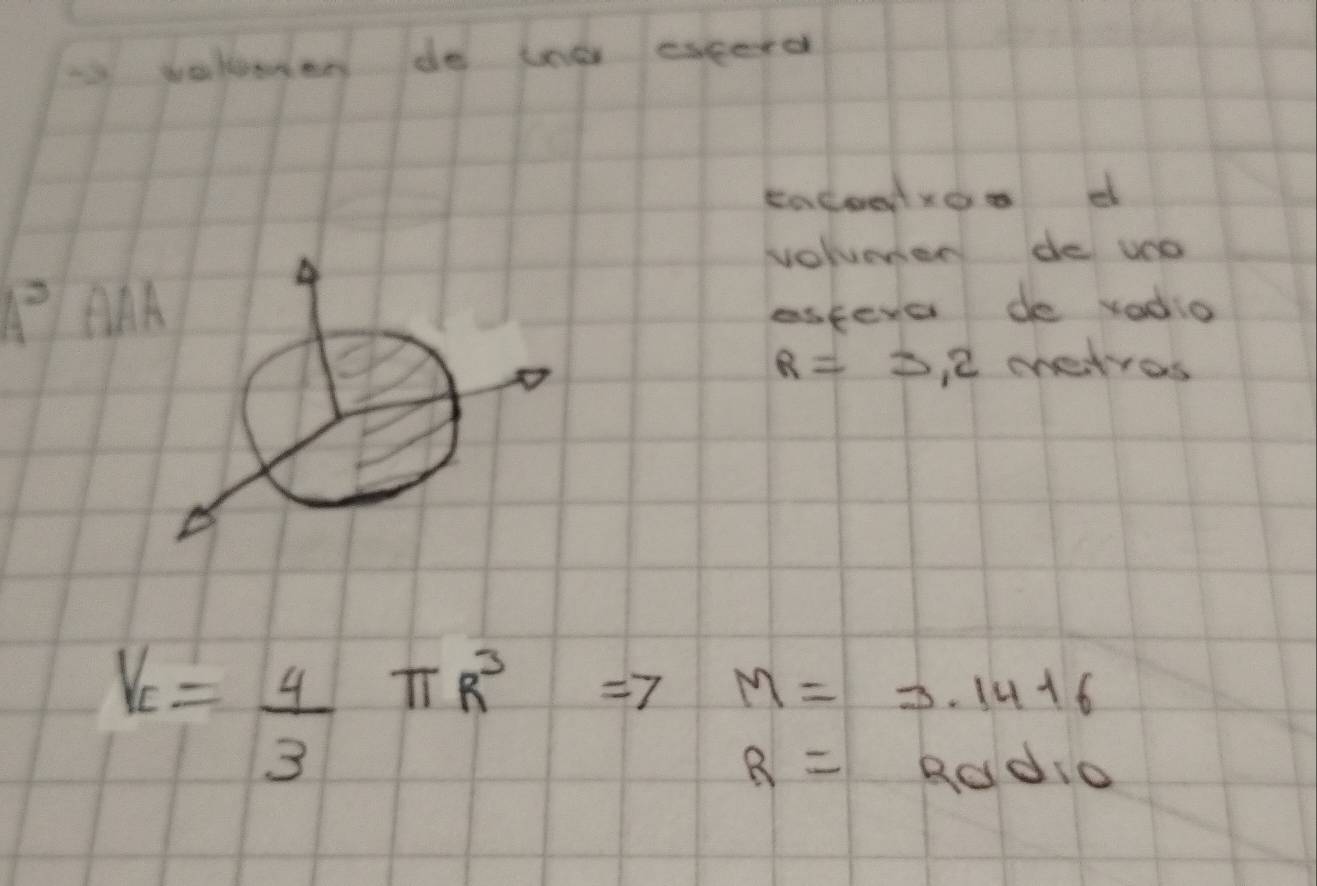 -> volumen de una esfera
encontrar el
volumen de una
esfera de radio
R = 3,2 metros
A³ AAA
VE = 4/3 π R³ => π = 3.1416
R = Radio